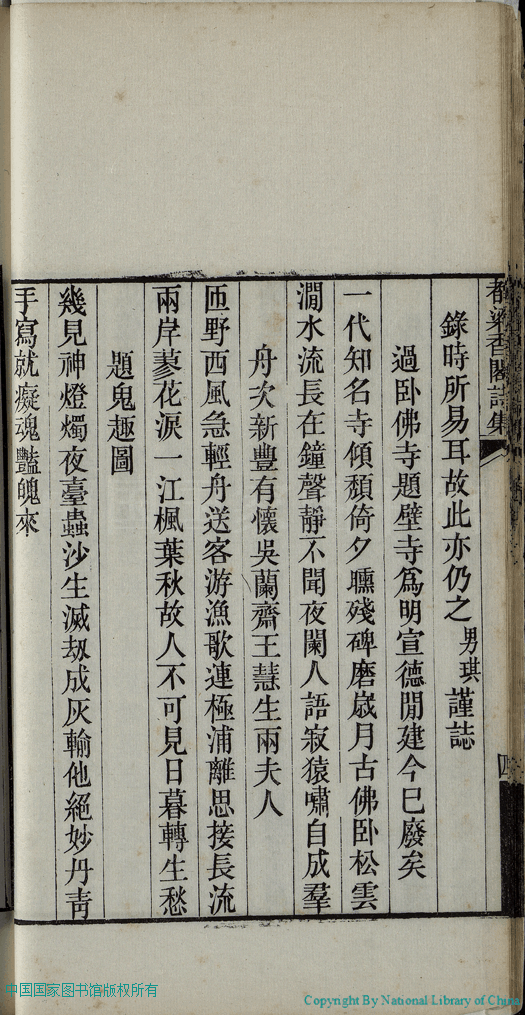 都梁香閣詩集
四
錄時所易耳故此亦仍之男琪謹誌
過卧佛寺題壁寺爲明宣德閒建今已廢矣
一代知名寺傾頹倚夕曛殘碑磨歲月古佛卧松雲
澗水流長在鐘聲靜不聞夜闌人語寂猿嘯自成羣
舟次新豐有懷吳蘭齋王慧生兩夫人
匝野西風急輕舟送客游漁歌連極浦離思接長流
兩岸蓼花淚一江楓葉秋故人不可見日暮轉生愁
題鬼趣圖
幾見神燈燭夜臺蟲沙生滅劫成灰輸他絕妙丹靑
手寫就癡魂豔魄來
中国国家图书馆版权所有
Copyright By National Library of China